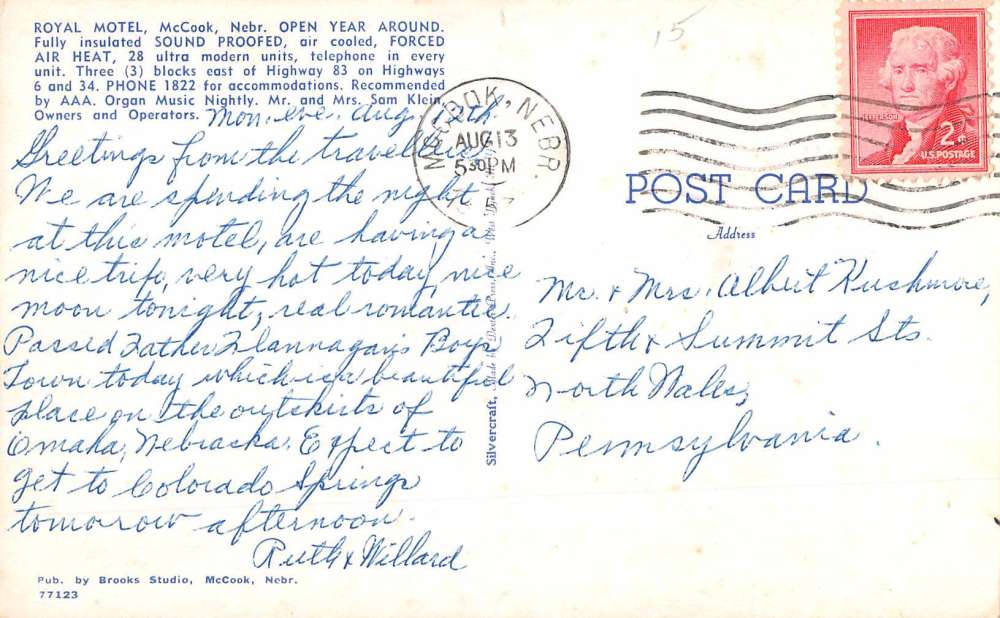 ROYAL MOTEL, McCook, Nebr. OPEN YEAR AROUND.
Fully insulated SOUND PROOFED, air cooled, FORCED
AIR HEAT, 28 ultra modern units, telephone in every
unit. Three (3) blocks east of Highway 83 on Highways
6 and 34. PHONE 1822 for accommodations. Recommended
by AAA. Organ Music Nightly. Mr. and Mrs. Sam Klein
Owners and Operators.
Mon. eve. Aug. 12th
Greetings from the travelers
We are spending the night
at this motel, are having a
nice trip, very hot today, nice
moon tonight, real romantic.
Passed Father Flannagan's Boys
Town today which is a beautiful
place on the outskirts of
Omaha, Nebraska. Expect to
get to Colorado Springs
tomorrow afternoon.
Ruth & Willard
Pub. by Brooks Studio, McCook, Nebr.
77123
Silvercraft, Made by Dexter Press, Inc., West
McCOOK, NEBR.
AUG 13
5 30 PM
15
JEFFERSON
2¢
U.S. POSTAGE
POST CARD
Address
Mr. & Mrs. Albert Kushmore,
Fifth & Summit Sts.
North Wales,
Pennsylvania.